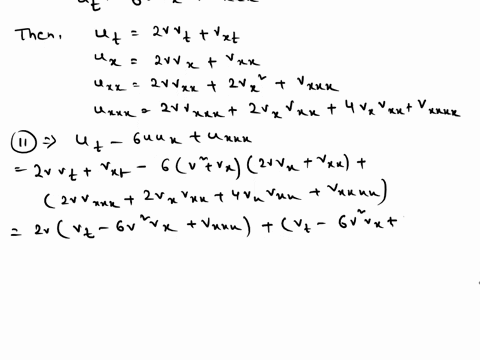 Then, u_t = 2vv_t + v_xt
u_x = 2vv_x + v_xx
u_xx = 2vv_xx + 2v_x² + v_xxx
u_xxx = 2vv_xxx + 2v_x v_xx + 4v_x v_xx + v_xxxx
(11) ⇒ u_t - 6uu_x + u_xxx
= 2v v_t + v_xt - 6(v²+v_x)(2vv_x + v_xx) +
(2vv_xxx + 2v_x v_xx + 4v_x v_xx + v_xxxx)
= 2v(v_t - 6v²v_x + v_xxx) + (v_t - 6v²v_x +